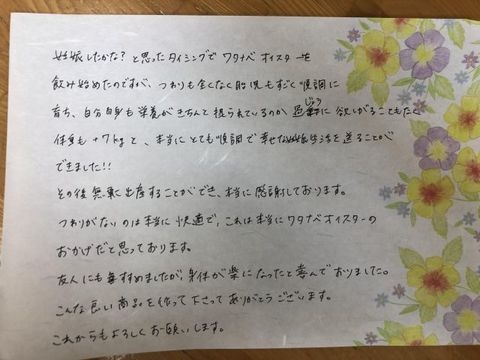 妊娠したかな?と思ったタイミングでワタナベオイスターを
飲み始めたのですが、つわりも全くなく胎児もすごく順調に
育ち、自分自身も栄養がきちんと摂られているのか過剰に欲しがることもなく
じょう
体重も+7kgと、本当にとても順調で幸せな妊婦生活を送ることが
できました!!
その後無事に出産することができ、本当に感謝しております。
つわりがないのは本当に快適で、これは本当にワタナベオイスターの
おかげだと思っております。
友人にもすすめましたが身体が楽になったと喜んでおりました。
こんな良い商品を作って下さってありがとうございます。
これからもよろしくお願いします。